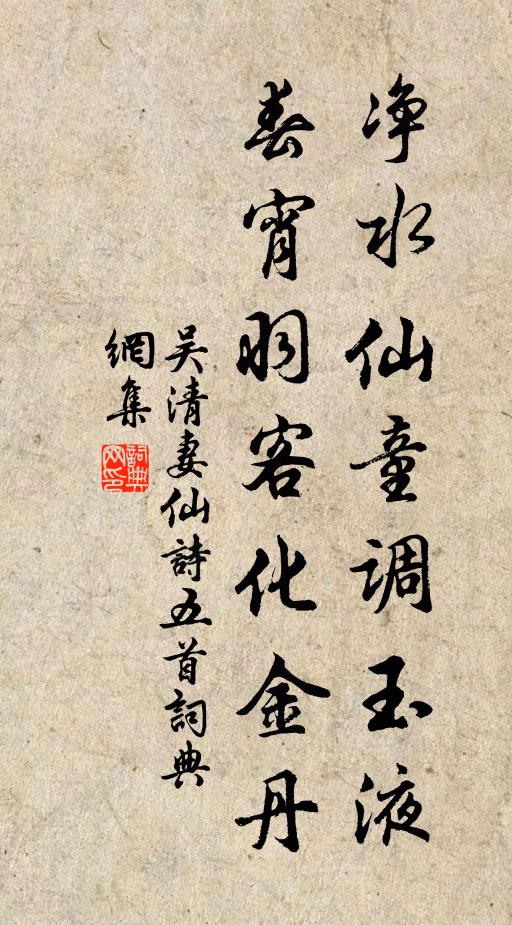 净水仙童调玉液
春宵羽客化金丹
吴清妻仙詩五首詞典
網集
詞典网印